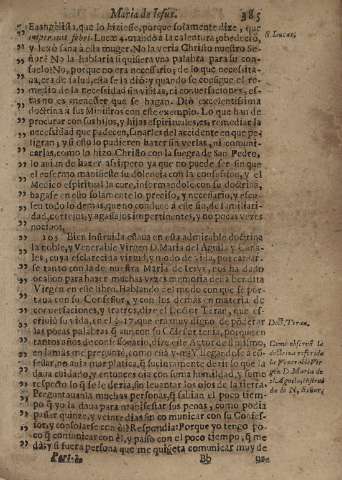 Maria de Iesus.
385
Euangelista, que lo hiziesse, porque solamente dize, que
imperauit febri. Luc. 4. mandò à la calentura, obedeciò,
S. Lucas.
y levò sana à esta muger. No la veria Christo nuestro Se-
ñor? No la hablaria siquiera vna palabra para su con-
suelo? No, porque no era necessario; de lo que necessita-
ua, era de salud, esta se la diò; y quando se consigue el re-
medio de la necessidad sin visitas, ni conuersaciones, es-
tas no es menester que se hagan. Diò excelentissima
doctrina à sus Ministros con este exemplo. Lo que han de
procurar con sus hijos, y hijas espirituales, es, remediar la
necessidad que padecen, sanarles del accidente en que pe-
ligran; y si esto lo pudieren hazer sin verlas, ni comuni-
carlas, como lo hizo Christo con la suegra de San Pedro,
lo han de hazer assi; pero ya que no puede ser, sin que
el enfermo manifieste su dolencia con la confession, y el
Medico espiritual la cure, informandole con su doctrina,
hagase en esto solamente lo preciso, y necessario, y escu-
sen todo lo demas, que no conduce à este fin, de familiari-
dad, cortejos, y agasajos impertinentes, y no pocas vezes
nociuos.
105 Bien instruida estaua en esta admirable doctrina
la noble, y Venerable Virgen D. Maria del Aguila, y Cana-
les, cuya esclarecida virtud, y modo de vida, por careár-
se tanto con la de nuestra Maria de Iesus, nos ha dado
ocasion para hazer muchas vezes memoria de la bendita
Virgen en este libro. Hablando del modo con que se por-
taua con su Confessor, y con los demas en materia de
conuersaciones, y tratos, dize el Señor Tarar, que es-
Doct. Taran.
criuiò su vida, en el §. 17. que era muy digno de ponderar
las pocas palabras q̃ aun con su Confessor tenia, porque en
tantos años como la confessò, dize este Autor de si mismo,
Como obseruò la
en
doctrina referida
la Venerable Vir-
gen D. Maria de
el Aguila, instrui-
da de N. Señor.
sellar, ni aun mas platica, q̃ sucintamente dezirle què la
daua cuidado, y entonces era con suma humildad, y sumo
respeto lo q̃ se le dezia, sin leuantar los ojos de la tierra.
Preguntauanla muchas personas, q̃ sabian el poco tiem-
po q̃ yo la daua para manifestar sus penas, como podia
passar quinze, y veinte dias sin comunicar con su Confes-
sor, y consolarse con èl? Respondia: Porque yo tengo po-
co q̃ comunicar con èl, y passo con el poco tiempo, q̃ me
da; y si fuera persona que me quisiera comunicar muy de
Bb